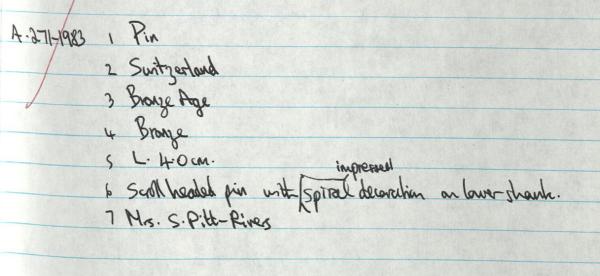 A.271-1983 1 Pin
2 Switzerland
3 Bronze Age
4 Bronze
5 L. 4.0 cm.
6 Scroll headed pin with impressed spiral decoration on lower shank.
7 Mrs. S. Pitt-Rivers